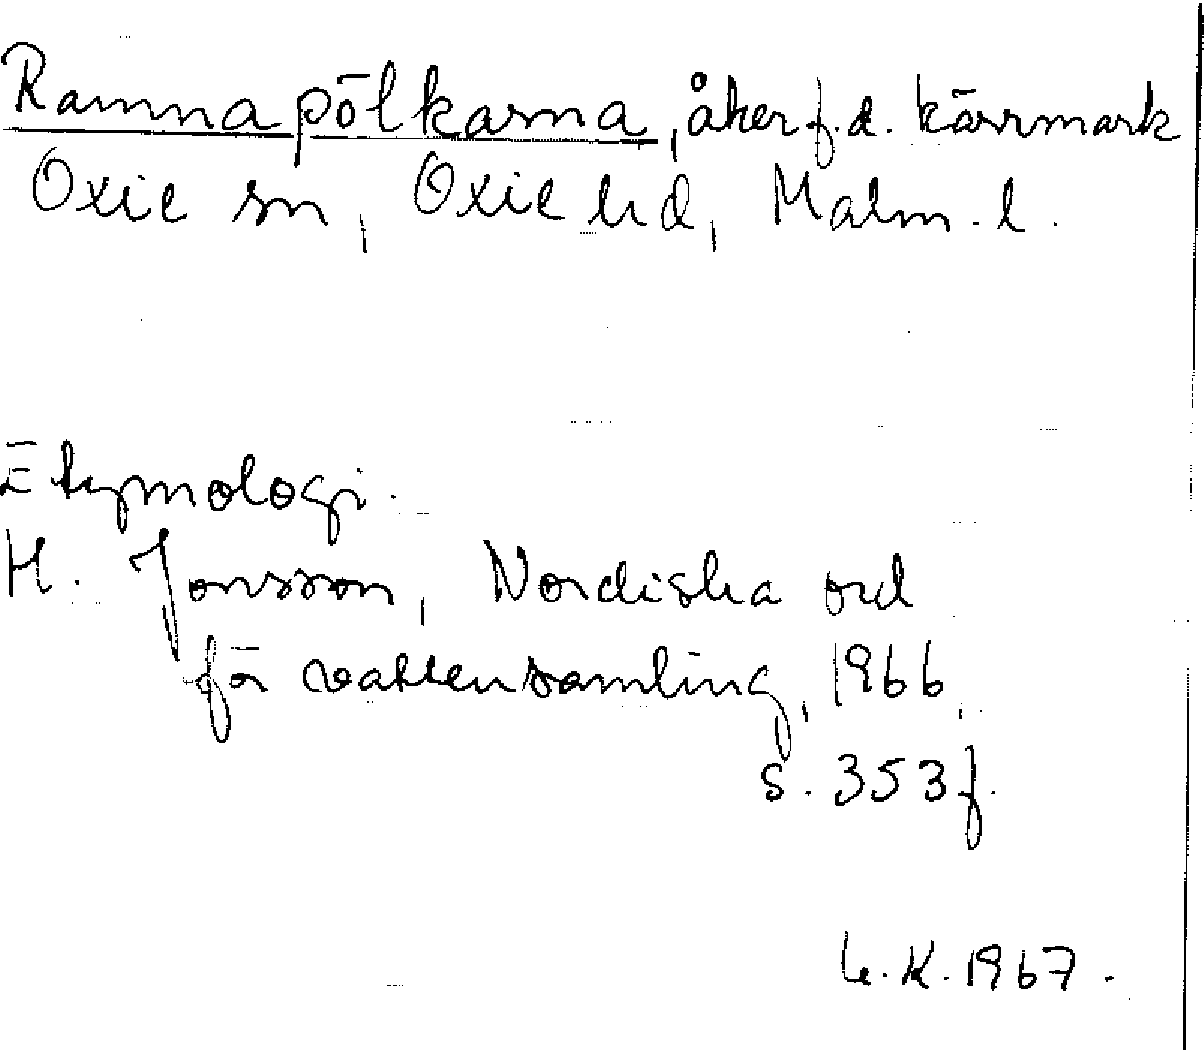 Ramnapölkarna, åker f.d. kärrmark
Oxie sn, Oxie hd, Malm. l.
Etymologi.
H. Jonsson, Nordiska ord
för vattensamling, 1966,
s. 353 f.
K. 1967.